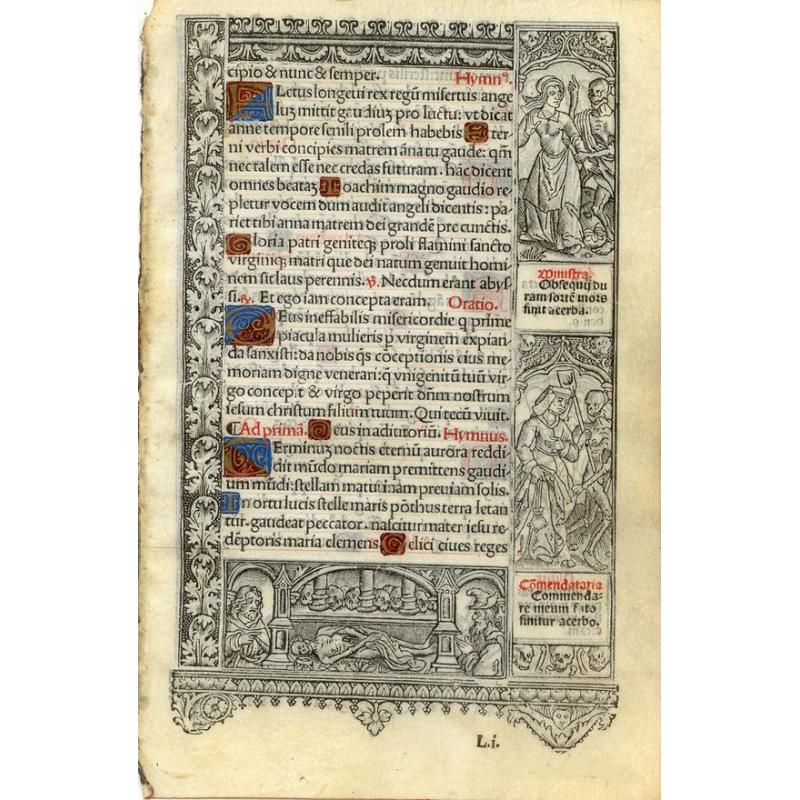 cipio & nunc & semper. Hymnꝰ.
FLetus longeui rex regū misertus ange
luʒ mittit gaudiuʒ pro luctu: vt dicat
anne tempore senili prolem habebis Eter-
ni verbi concipies matrem āna tu gaude: qm̄
nec talem esse nec credas futuram. hāc dicent
omnes beataʒ Ioachim magno gaudio re-
pletur vocem dum audit angeli dicentis: pa-
riet tibi anna matrem dei grandē pre cunctis.
Gloria patri genitoqʒ proli flamini sancto
virginiqʒ matri que dei natum genuit homi-
nem sit laus perennis. ℣. Necdum erant abys-
si. ℟. Et ego iam concepta eram. Oratio.
DEus ineffabilis misericordie q prime
piacula mulieris p virginem expian-
da sanxisti: da nobis qs cōceptionis eius me-
moriam digne venerari: q̄ vnigenitū tuū vir-
go concepit & virgo peperit dn̄m nostrum
iesum christum filium tuum. Qui tecū viuit.
¶Ad primā. Deus in adiutoriū. Hymnus.
TErminuʒ noctis eternū aurora reddi-
dit mūdo mariam premittens gaudi-
um mūdi: stellam matutinam preuiam solis.
In ortu lucis stelle maris pōthus terra letan
tur. gaudeat peccator. nascitur mater iesu re-
dēptoris maria clemens. Celici ciues reges
Ministra.
Obsequij du
ram sortē mors
finit acerba.
Cōmendataria
Commenda-
re meum fato
finitur acerbo.
L.i.